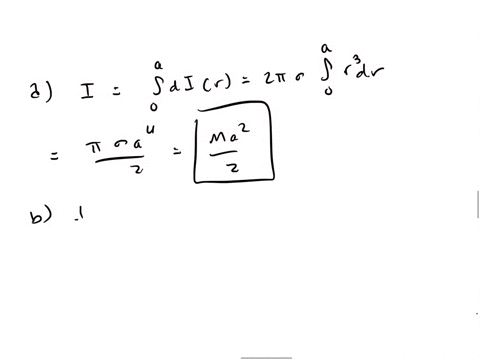 a) I = ∫₀ᵃ dI(r) = 2π σ ∫₀ᵃ r³dr
= π σ a⁴ / 2 = Ma² / 2
b)